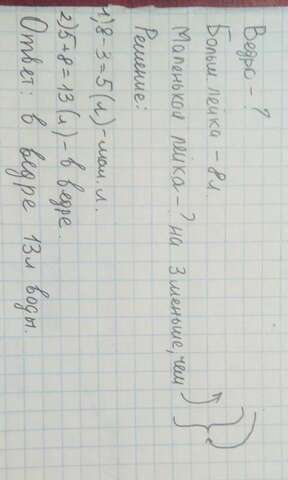 Ведро - ?
Больш. лейка - 8л.
Маленькая лейка - ? на 3 меньше, чем
Решение:
1) 8-3=5 (л) - мал. л.
2) 5+8=13 (л) - в ведре.
Ответ: в ведре 13л воды.